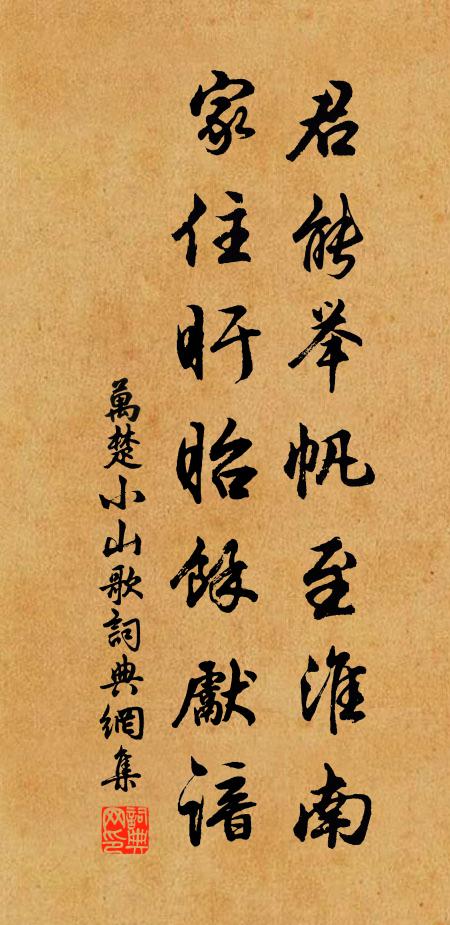 君能举帆至淮南
家住盱眙餘獻諳
萬楚小山歌詞典網集
詞典网印